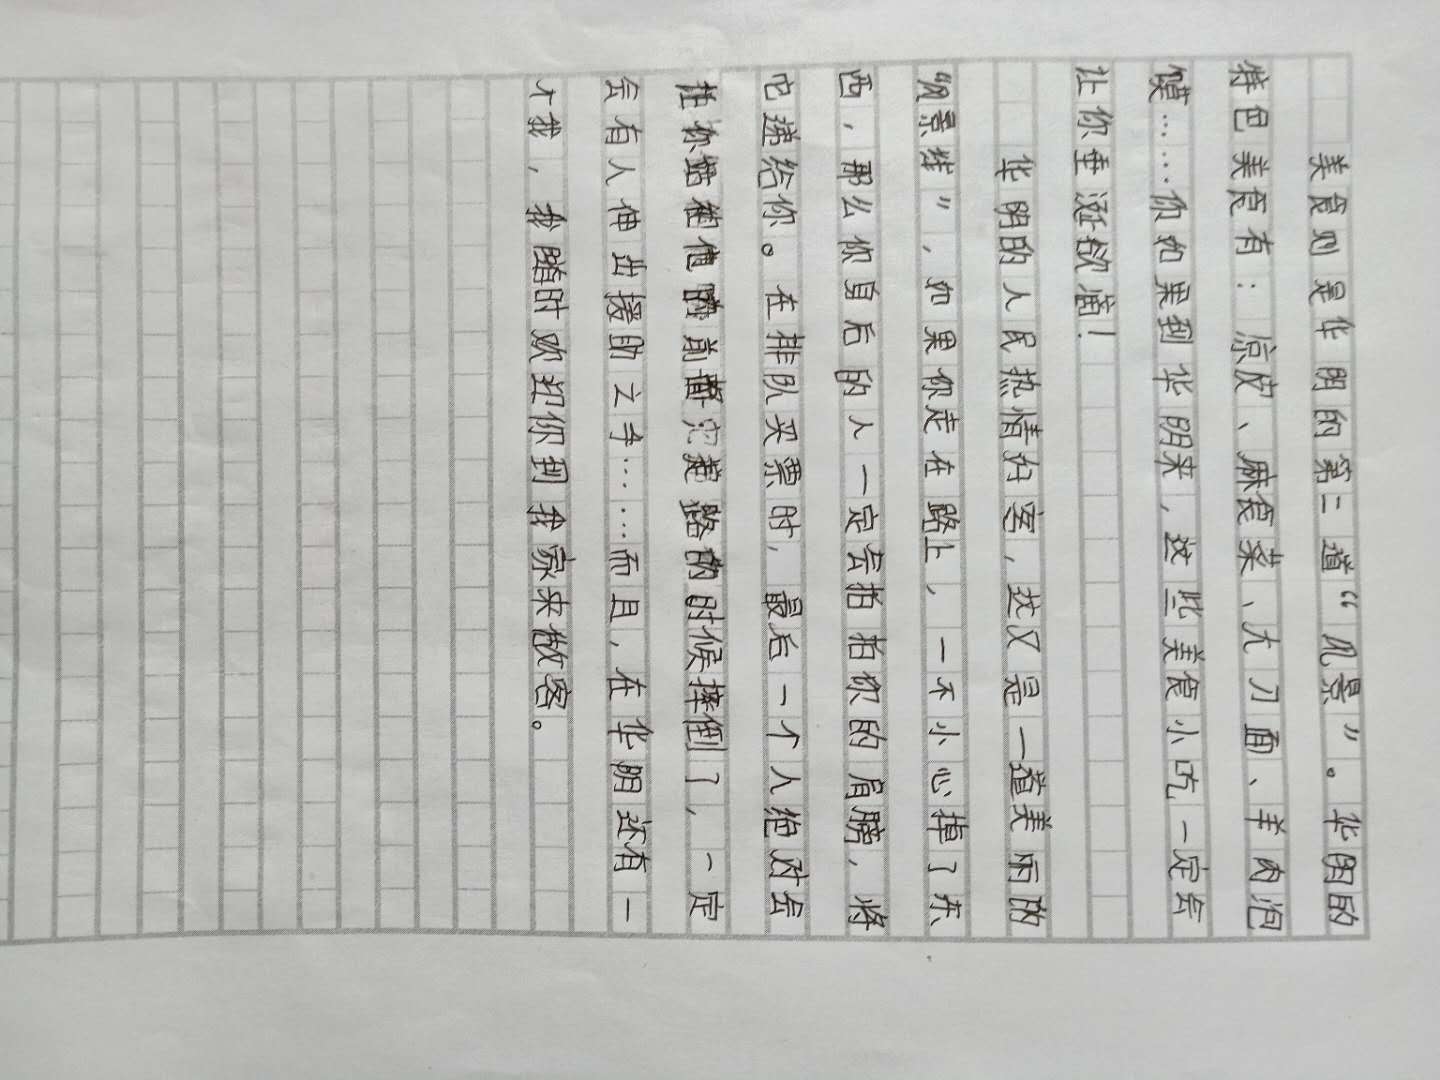 美食则是华明的第二道“风景”。华明的
特色美食有：凉皮、麻食菜、大刀面、羊肉泡
馍……你如果到华明来，这些美食小吃一定会
让你垂涎欲滴！
华明的人民热情好客，这又是一道美丽的
“风景线”，如果你走在路上，一不小心掉了东
西，那么你身后的人一定会拍拍你的肩膀，将
它递给你。在排队买票时，最后一个人绝对会
在你前面 路的时候摔倒了，一定
会有人伸出援助之手……而且，在华明还有一
个我，我随时欢迎你到我家来做客。